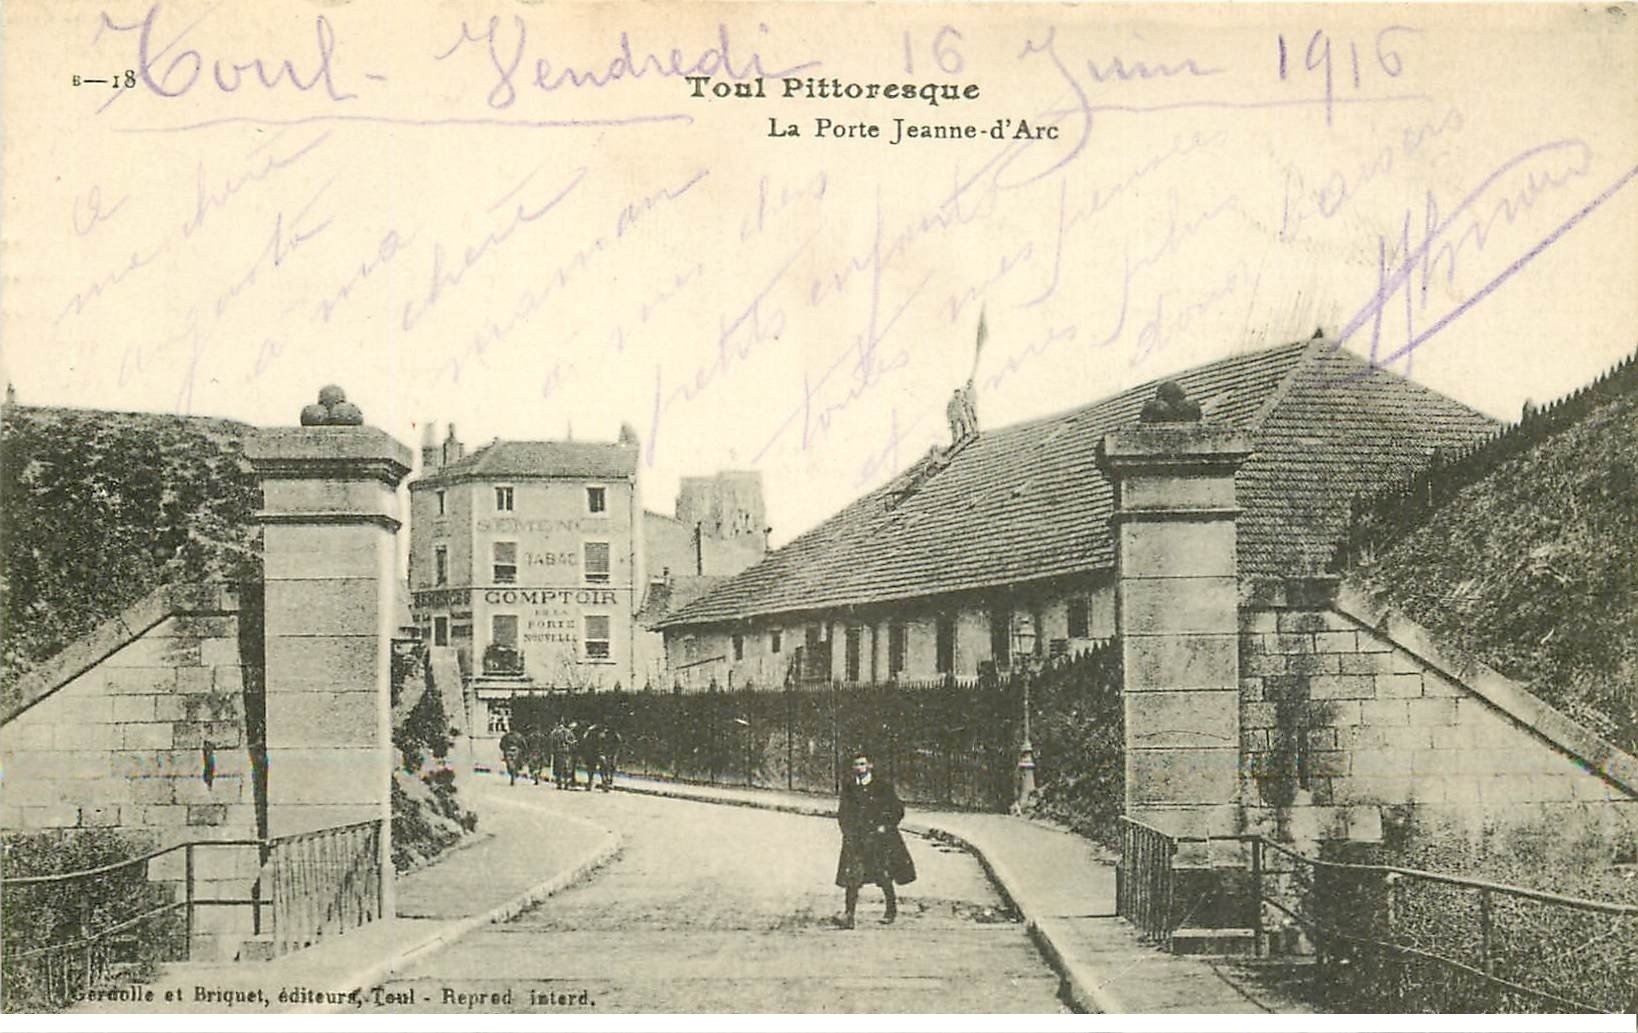 Toul - Vendredi 16 Juin 1916
B—18
Toul Pittoresque
La Porte Jeanne-d'Arc
a
me cherie
a ma
cherie
maman
a mes chers
petits enfants
toutes mes pensees
et mes plus
doux baisers
SEMENCES
TABAC
SEMENCES
COMPTOIR
DE LA
PORTE
NOUVELLE
Gerdolle et Briquet, éditeurs, Toul - Reprod interd.